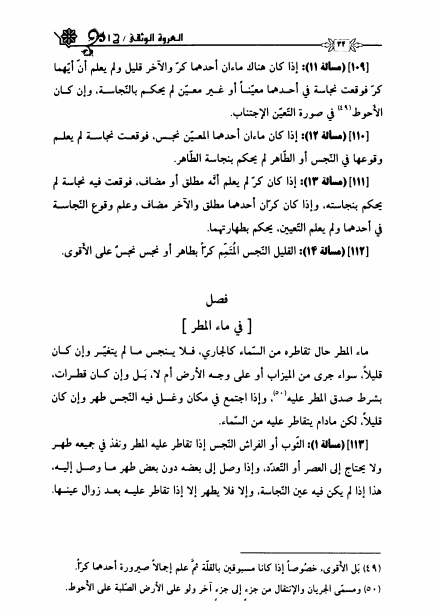 ٣٤ العروة الوثقى / ج ١
[١٠٩] (مسألة ١١): إذا كان هناك ماءان أحدهما كرّ والآخر قليل ولم يعلم أنّ أيّهما
كرّ فوقعت نجاسة في أحدهما معيّناً أو غير معيّن لم يحكم بالنّجاسة، وإن كان
الأحوط(٤٩) في صورة التعيّن الإجتناب.
[١١٠] (مسألة ١٢): إذا كان ماءان أحدهما المعيّن نجس، فوقعت نجاسة لم يعلم
وقوعها في النّجس أو الطّاهر لم يحكم بنجاسة الطّاهر.
[١١١] (مسألة ١٣): إذا كان كرّ لم يعلم أنّه مطلق أو مضاف، فوقعت فيه نجاسة لم
يحكم بنجاسته، وإذا كان كرّان أحدهما مطلق والآخر مضاف وعلم وقوع النّجاسة
في أحدهما ولم يعلم التّعيين، يحكم بطهارتهما.
[١١٢] (مسألة ١٤): القليل النّجس المُتمِّم كرّاً بطاهر أو نجس نجسٌ على الأقوى.
فصل
[ في ماء المطر ]
ماء المطر حال تقاطره من السّماء كالجاري، فلا ينجس ما لم يتغيّر وإن كان
قليلاً، سواء جرى من الميزاب أو على وجه الأرض أم لا، بل وإن كان قطرات،
بشرط صدق المطر عليه(٥٠)، وإذا اجتمع في مكان وغسل فيه النّجس طهر وإن كان
قليلاً، لكن مادام يتقاطر عليه من السّماء.
[١١٣] (مسألة ١): الثّوب أو الفراش النّجس إذا تقاطر عليه المطر ونفذ في جميعه طهر
ولا يحتاج إلى العصر أو التعدّد، وإذا وصل إلى بعضه دون بعض طهر ما وصل إليه،
هذا إذا لم يكن فيه عين النّجاسة، وإلا فلا يطهر إلا إذا تقاطر عليه بعد زوال عينها.
(٤٩) بَل الأقوى، خصُوصاً إذا كانا مسبوقين بالقلّة ثمَّ علم إجمالاً صيرورة أحدهما كرّاً.
(٥٠) ومسمّى الجريان والإنتقال من جزء إلى جزء آخر ولو على الأرض الصّلبة على الأحوط.